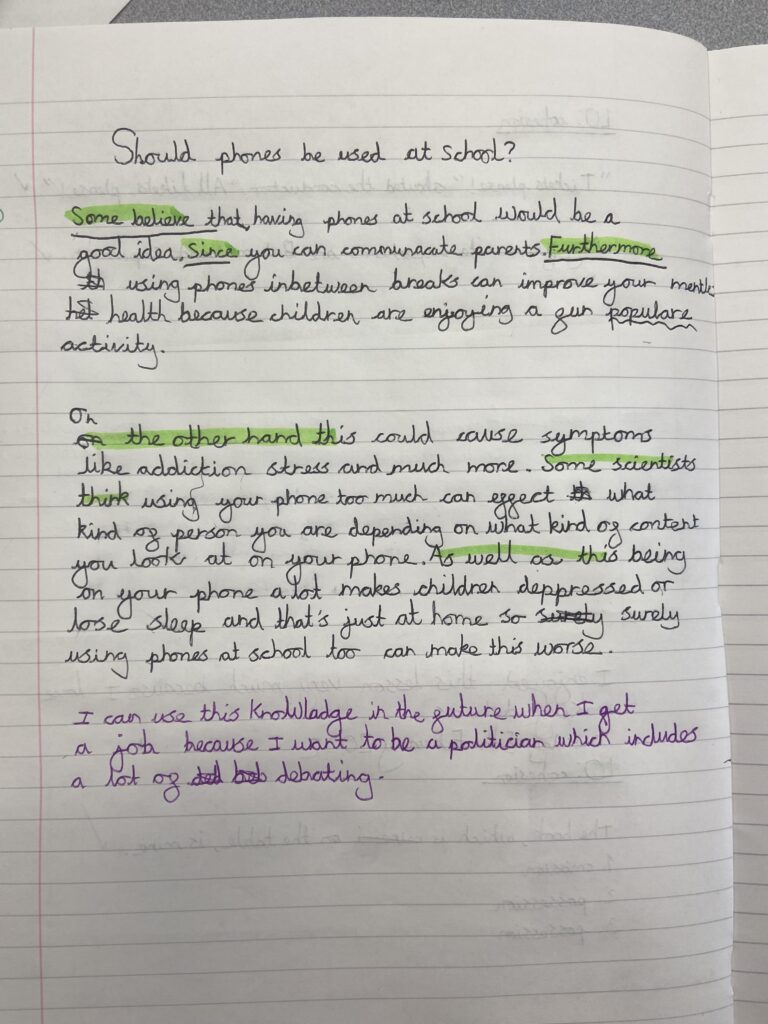 Should phones be used at school?
Some believe that, having phones at school would be a
good idea, Since you can communacate parents. Furthermore
using phones inbetween breaks can improve your mentle
health because children are enjoying a fun populare
activity.
On
the other hand this could cause symptoms
like addiction stress and much more. Some scientists
think using your phone too much can effect what
kind of person you are depending on what kind of content
you look at on your phone. As well as this being
on your phone a lot makes children deppressed or
lose sleep and that's just at home so surely
using phones at school too can make this worse.
I can use this knowladge in the future when I get
a job because I want to be a politician which includes
a lot of debating.